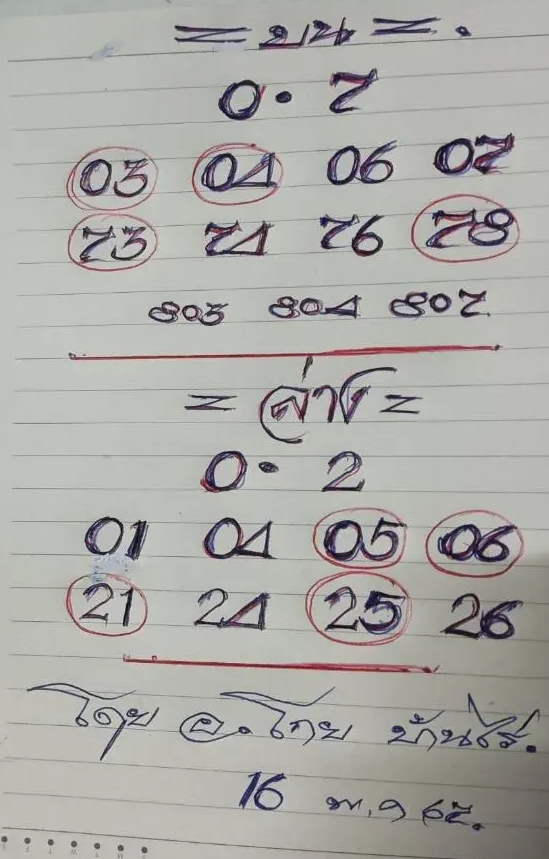 = บน =.
0 · 7
03 04 06 07
73 74 76 78
803 804 807
= ล่าง =
0 · 2
01 04 05 06
21 24 25 26
โดย อ. ไทย บ้านไร่.
16 พ.ค 65.